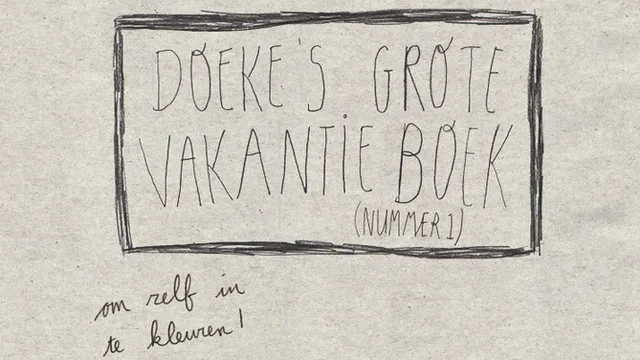 DOEKE'S GROTE
VAKANTIE BOEK
(NUMMER 1)
om zelf in
te kleuren!